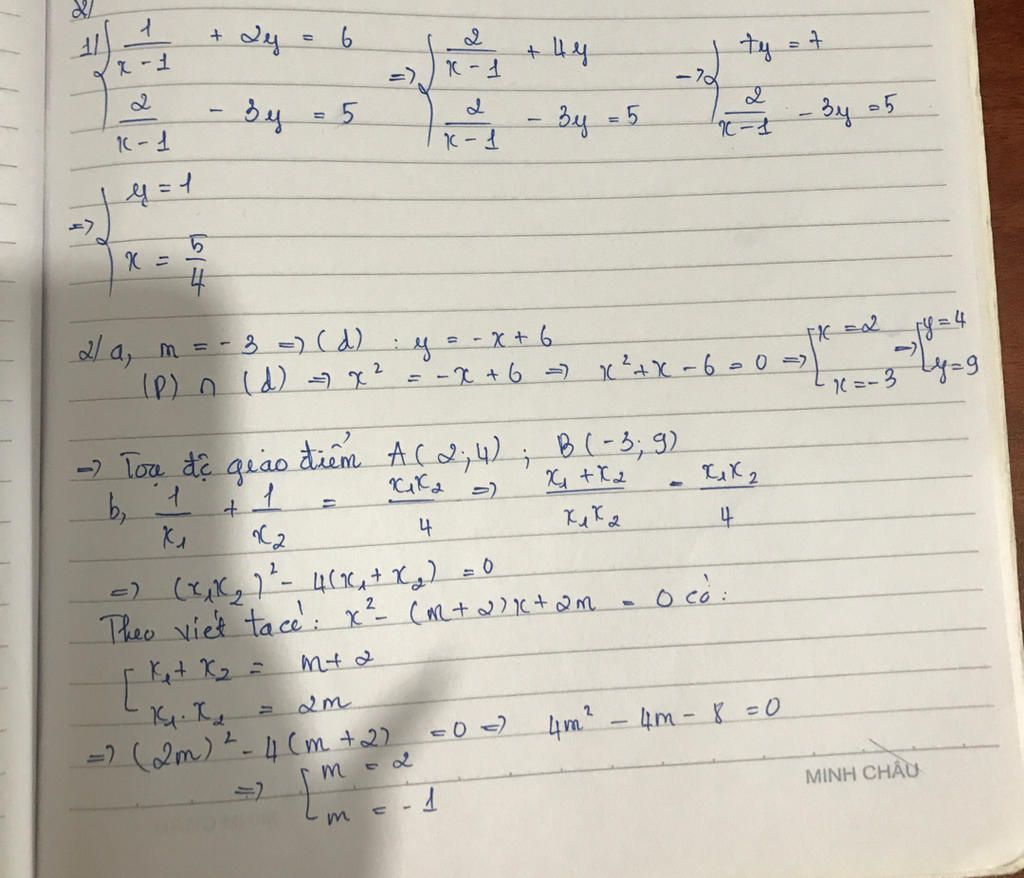 2/
1/ { 1/(x-1) + 2y = 6 => { 2/(x-1) + 4y -> { 7y = 7
{ 2/(x-1) - 3y = 5 { 2/(x-1) - 3y = 5 { 2/(x-1) - 3y = 5
=> { y = 1
{ x = 5/4
2/ a, m = -3 => (d) : y = -x + 6
(P) ∩ (d) => x² = -x + 6 => x² + x - 6 = 0 => [ x = 2 => [ y = 4
[ x = -3 [ y = 9
=> Toạ độ giáo điểm A(2;4) ; B(-3;9)
b, 1/x₁ + 1/x₂ = x₁x₂/4 => (x₁ + x₂)/(x₁x₂) - x₁x₂/4
=> (x₁x₂)² - 4(x₁ + x₂) = 0
Theo viét ta có : x² - (m + 2)x + 2m = 0 có :
[ x₁ + x₂ = m + 2
[ x₁ . x₂ = 2m
=> (2m)² - 4(m + 2) = 0 => 4m² - 4m - 8 = 0
=> [ m = 2
[ m = -1
MINH CHÂU